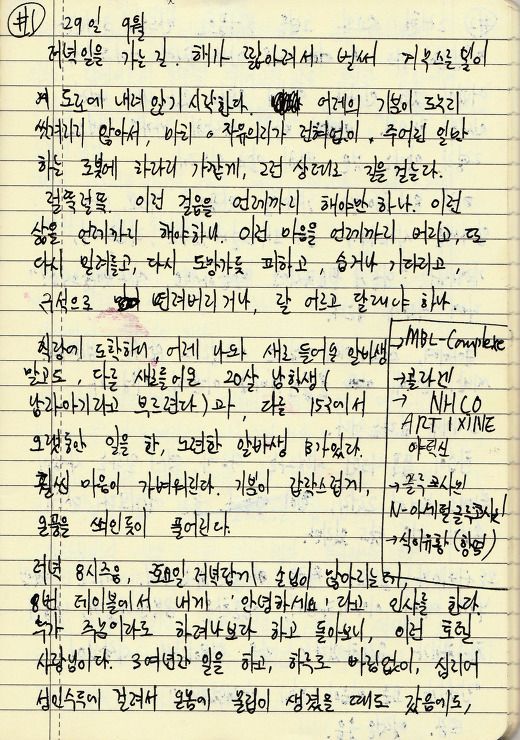 #1
29일 9월
저녁일을 가는 길. 해가 짧아져서 벌써 거무스름 빛이
도로에 내려 앉기 시작한다. 어제의 기분이 도무지
씻겨지지 않아서, 마치 자유의지가 전혀없이, 주어진 일만
하는 로봇에 차라리 가깝게, 그런 상태로 길을 걷는다.
걸죽걸죽. 이런 걸음을 언제까지 해야만 하나. 이런
삶을 언제까지 해야하나. 이런 마음을 언제까지 버리고, 또
다시 밀려들고, 다시 도망가듯 피하고, 숨거나 기다리고,
구석으로 밀려버리거나, 잘 어르고 달래야 하나.
직장에 도착하니, 어제 나와 새로 들어온 알바생
말고도, 다른 새로들어온 20살 남학생(
남자아기라고 부르련다)과, 다른 15구에서
오랫동안 일을 한, 노련한 알바생 B가있다.
훨씬 마음이 가벼워진다. 기분이 갑작스럽게,
눈꽃을 풀어진다.
→MBL-Complexe
→콜라겐
→ NHCO
ARTIXINE
→글루코사민
N-아세틸글루코사민
→식이유황(항염)
저녁 8시즈음, 토요일 저녁답게 손님이 많아지는데,
8번 테이블에서 내게 '안녕하세요'라고 인사를 한다
추가 주문이라도 하려나보다 하고 돌아보니, 이런 호텔
사장님이다. 3여년간 일을 하고, 하루도 빠짐없이, 심지어
성인수두에 걸려서 온몸에 물집이 생겼을 때도 갔음에도,